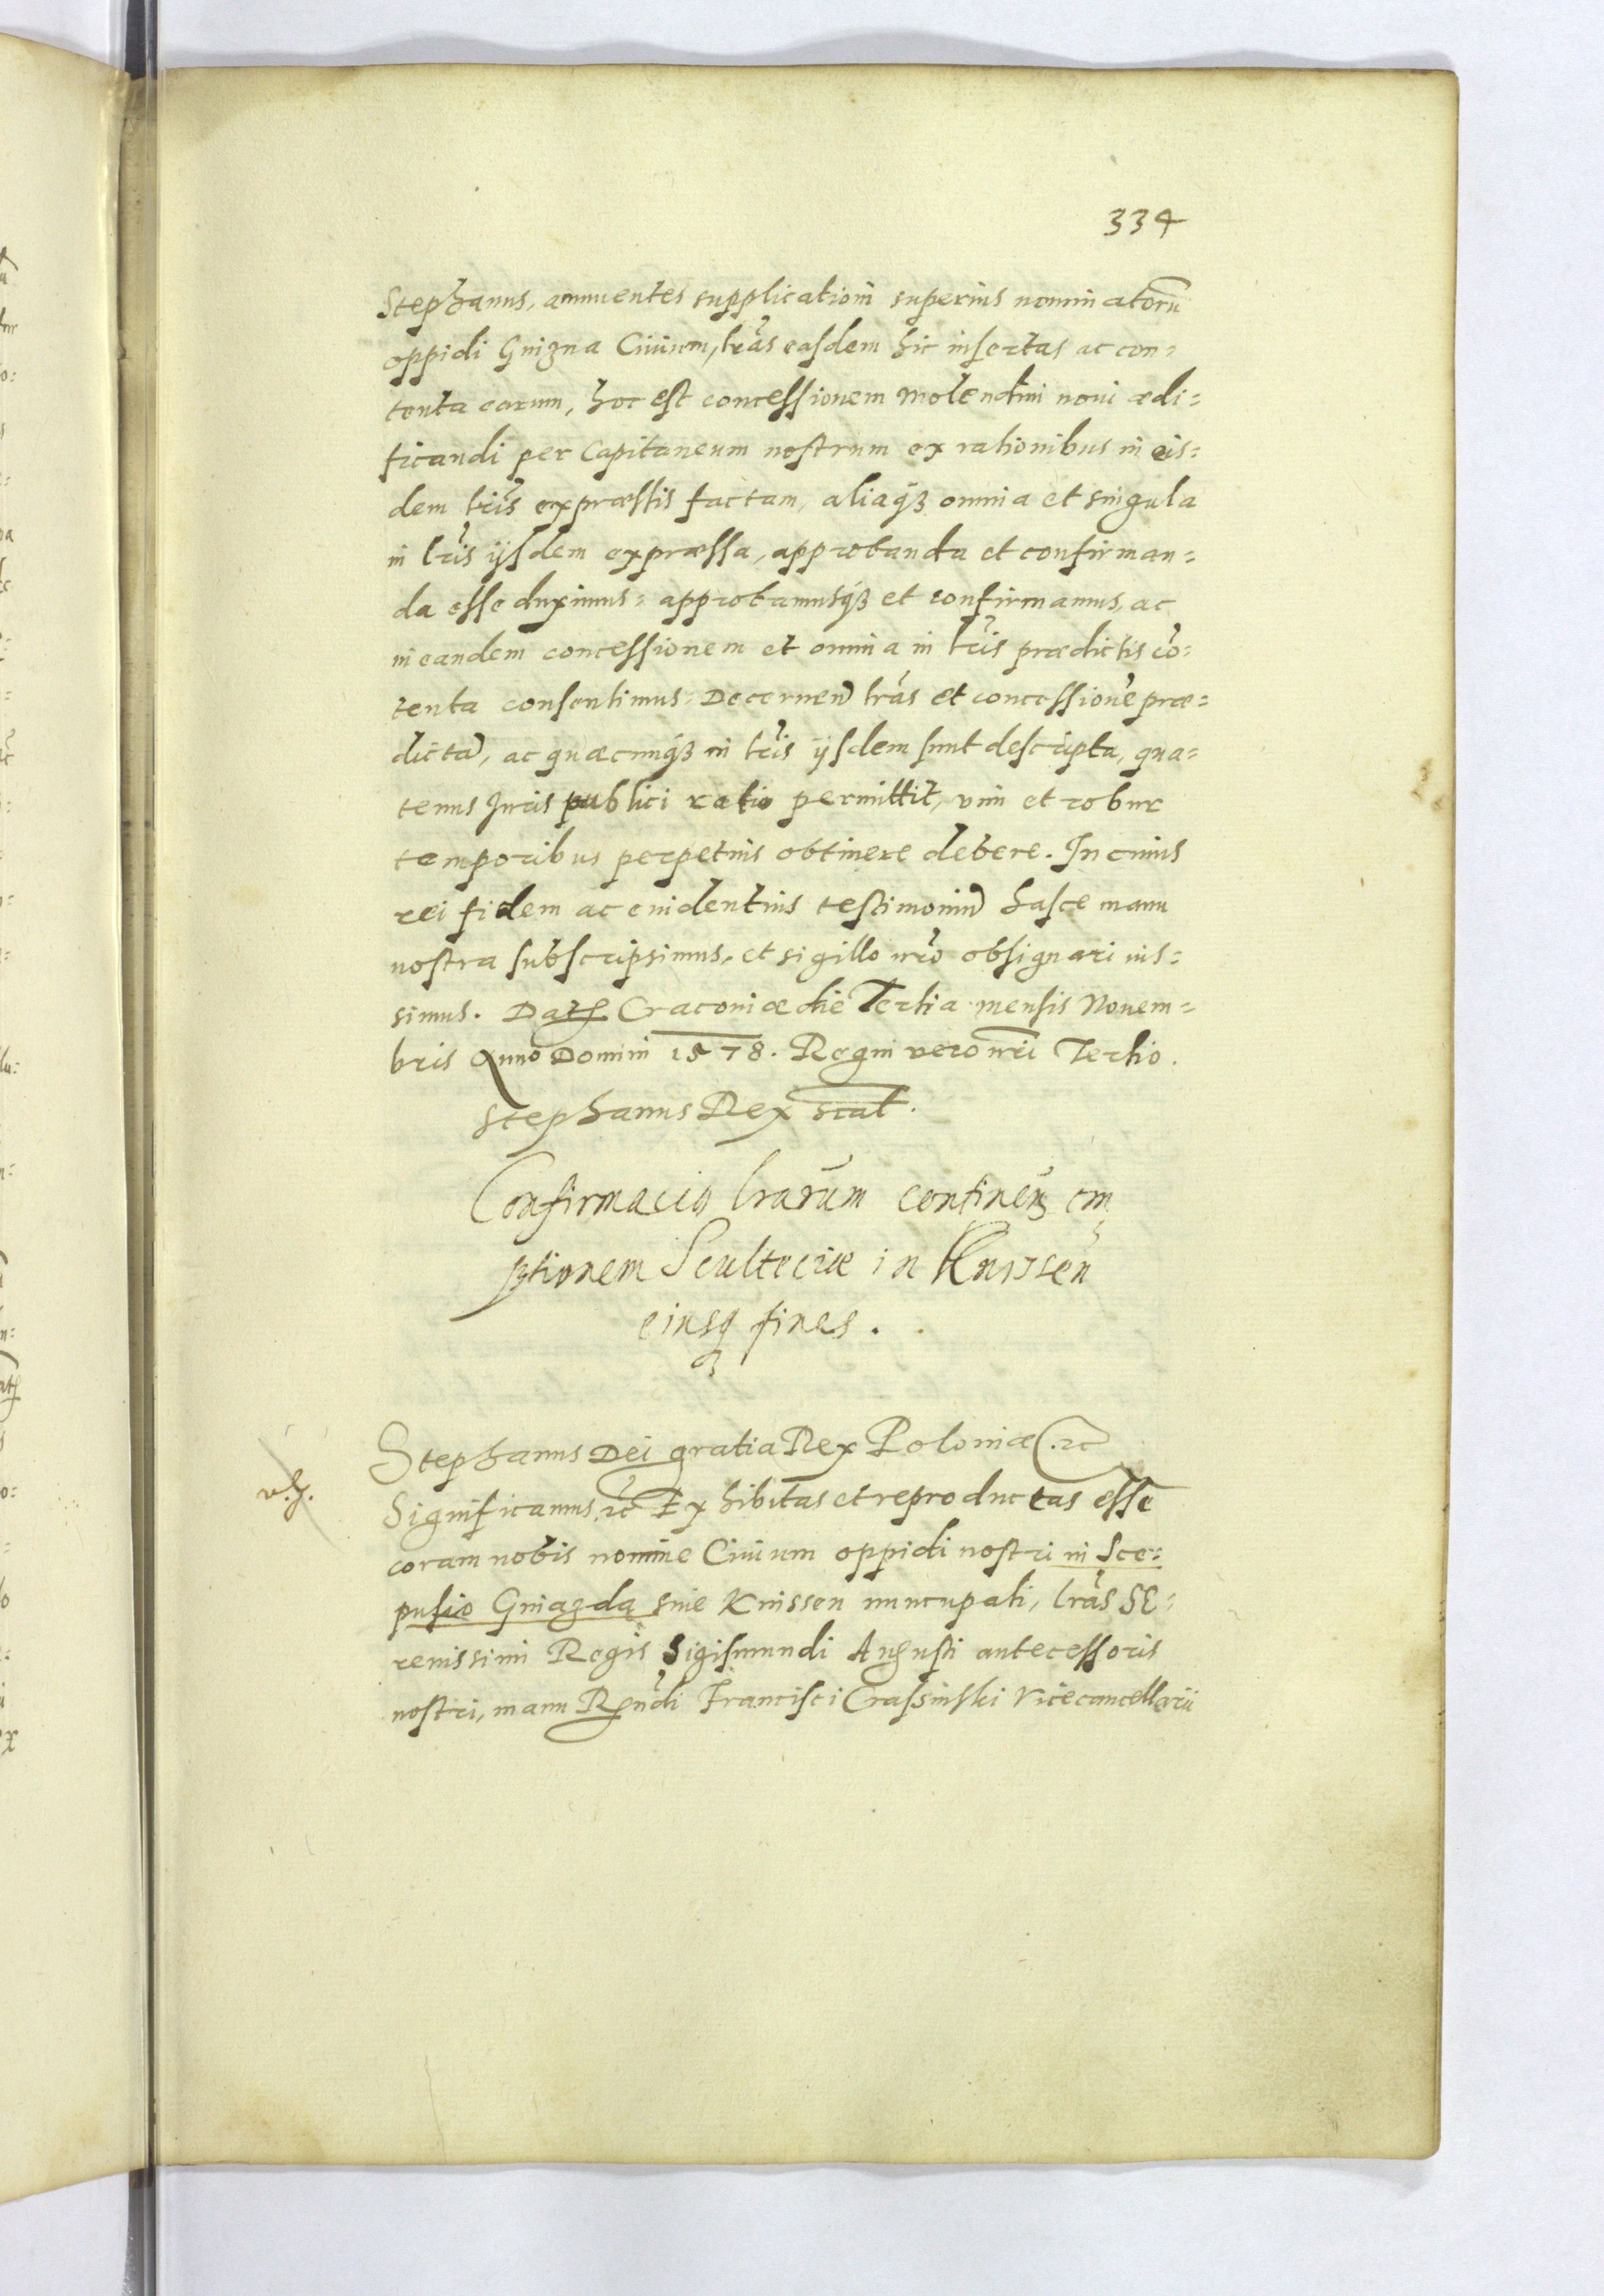 334
Stephanus, annuentes supplicationi superius nominatorũ
oppidi Gnizna Ciuium, lrãs easdem hic insertas ac con=
tenta earum, hoc est concessionem molendini noui ædi=
ficandi per Capitaneum nostrum ex rationibus in eis=
dem lrĩs expræssis factam, aliaq́ꝫ omnia et singula
in lrĩs ijsdem expræssa, approbanda et confirman=
da esse duximus: approbamusq́ꝫ et confirmamus, ac
in eandem concessionem et omnia in lrĩs prædictis cõ=
tenta consentimus: Decernen̄ lrãs et concessionẽ præ=
dictã, ac quæcunq́ꝫ in lrĩs ijsdem sunt descripta, qua=
tenus Juris publici ratio permittit, vim et robur
temporibus perpetuis obtinere debere. In cuius
rei fidem ac euidentius testimoniũ hasce manu
nostra subscripsimus, et sigillo nr̃o obsignari ius=
simus. Datꝭ Cracouiæ die Tertia mensis Nouem=
bris Anno Domini 1578. Regni vero nr̃i Tertio.
Stephanus Rex scat.
Confirmacio lrarũm continen̄ em
ptionem Sculteciæ in Knissen
eiusqꝫ fines.
Stephanus Dei gratia Rex Poloniæ ꝛc
v. h.
Significamus ꝛc Exhibitas et reproductas esse
coram nobis nomine Ciuium oppidi nostri in Sce=
pusio Gniazda siue Knissen nuncupati, lrãs Se=
renissimi Regis Sigismundi Augusti antecessoris
nostri, manu Rñdi Francisci Crassinski Vicecancellarii